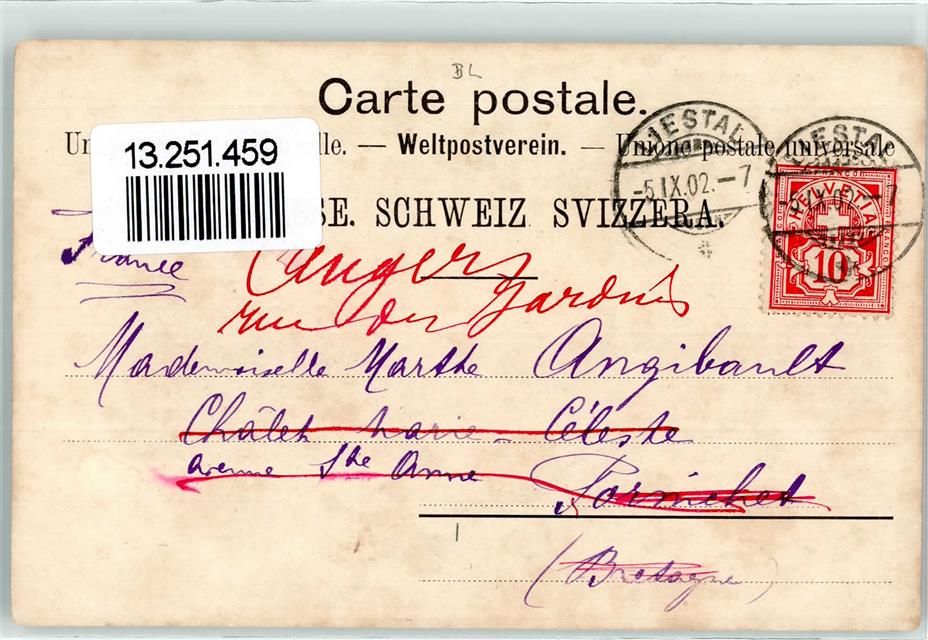 BL
Carte postale.
13.251.459
Un lle. — Weltpostverein. — Unione postale universale
SE. SCHWEIZ SVIZZERA.
LIESTAL
-5.IX.02.-7
LIESTAL
HELVETIA
FRANCO
10
France
Angers
rue des
Mademoiselle Marthe Angibault
Châlet Marie-Céleste
avenue Ste Anne Pornichet
(Bretagne)